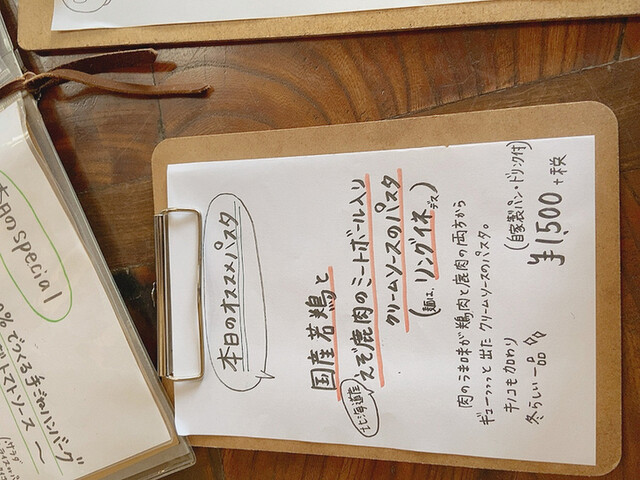 本日のオススメパスタ
国産若鶏と
北海道産
えぞ鹿肉のミートボール入り
クリームソースのパスタ
(麺は、リングイネデス)
肉のうま味が鶏肉と鹿肉の両方から
ギューっっっと出たクリームソースのパスタ。
キノコも加わり
冬らしい一品
(自家製パン・ドリンク付)
¥1,500+税
本日のspecial
0%でつくる手ごねハンバーグ
トマトソース〜